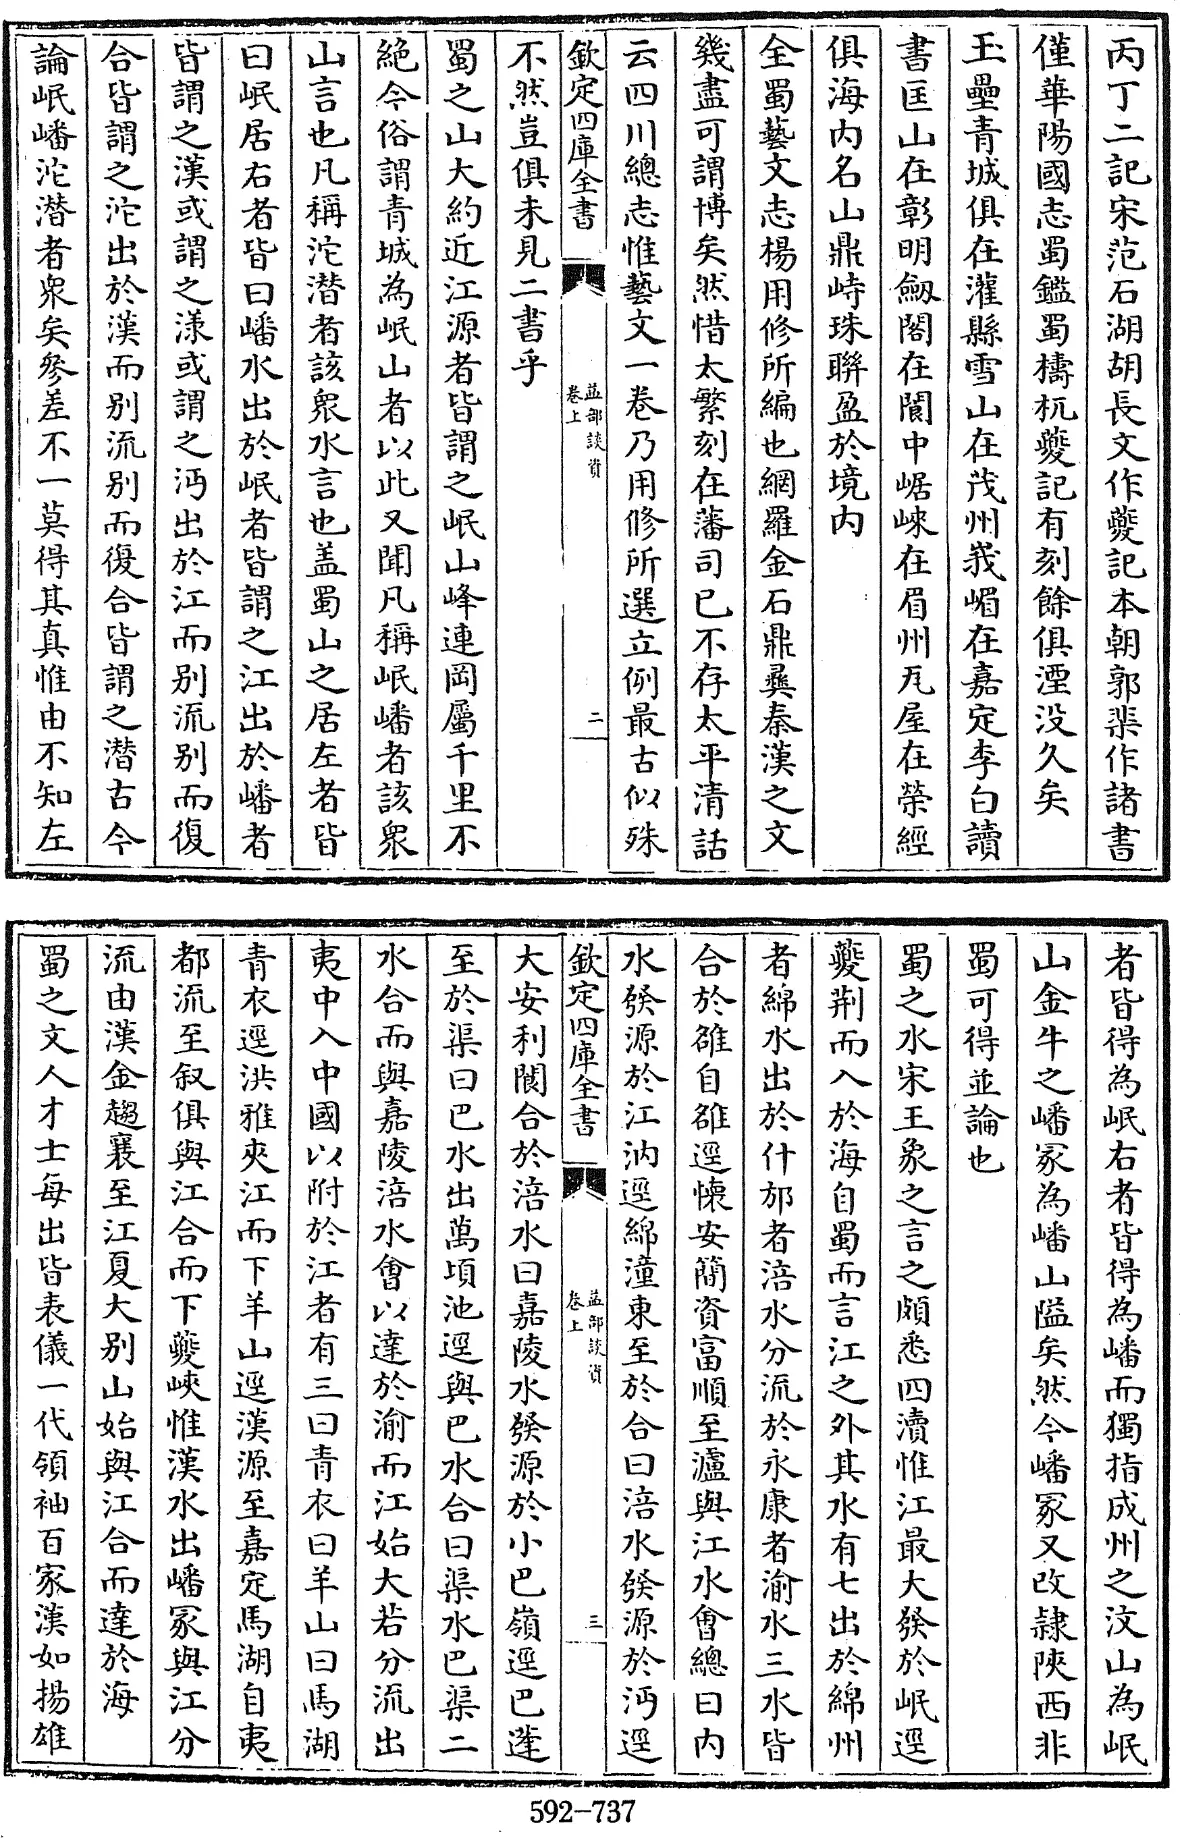 丙丁二記宋范石湖胡長文作夔記本朝郭棐作諸書
僅華陽國志蜀鑑蜀檮杌夔記有刻餘俱湮没久矣
玉壘青城俱在灌縣雪山在茂州峩嵋在嘉定李白讀
書匡山在彰明劔閣在閬中崌崍在眉州瓦屋在榮經
俱海内名山鼎峙珠聯盈於境内
全蜀藝文志楊用修所編也網羅金石鼎彞秦漢之文
幾盡可謂博矣然惜太繁刻在藩司已不存太平清話
云四川總志惟藝文一卷乃用修所選立例最古似殊
欽定四庫全書
益部談資
卷上
二
不然豈俱未見二書乎
蜀之山大約近江源者皆謂之岷山峰連岡屬千里不
絶今俗謂青城為岷山者以此又聞凡稱岷嶓者該衆
山言也凡稱沱潜者該衆水言也盖蜀山之居左者皆
曰岷居右者皆曰嶓水出於岷者皆謂之江出於嶓者
皆謂之漢或謂之漾或謂之沔出於江而别流别而復
合皆謂之沱出於漢而别流别而復合皆謂之潜古今
論岷嶓沱潜者衆矣參差不一莫得其真惟由不知左
者皆得為岷右者皆得為嶓而獨指成州之汶山為岷
山金牛之嶓冢為嶓山隘矣然今嶓冢又改隷陜西非
蜀可得並論也
蜀之水宋王象之言之頗悉四瀆惟江最大發於岷逕
夔荆而入於海自蜀而言江之外其水有七出於綿州
者綿水出於什邡者涪水分流於永康者渝水三水皆
合於雒自雒逕懷安簡資富順至瀘與江水會總曰内
水發源於江汭逕綿潼東至於合曰涪水發源於沔逕
欽定四庫全書
益部談資
卷上
三
大安利閬合於涪水曰嘉陵水發源於小巴嶺逕巴蓬
至於渠曰巴水出萬頃池逕與巴水合曰渠水巴渠二
水合而與嘉陵涪水會以達於渝而江始大若分流出
夷中入中國以附於江者有三曰青衣曰羊山曰馬湖
青衣逕洪雅夾江而下羊山逕漢源至嘉定馬湖自夷
都流至叙俱與江合而下夔峽惟漢水出嶓冢與江分
流由漢金趨襄至江夏大别山始與江合而達於海
蜀之文人才士每出皆表儀一代領袖百家漢如揚雄
592-737